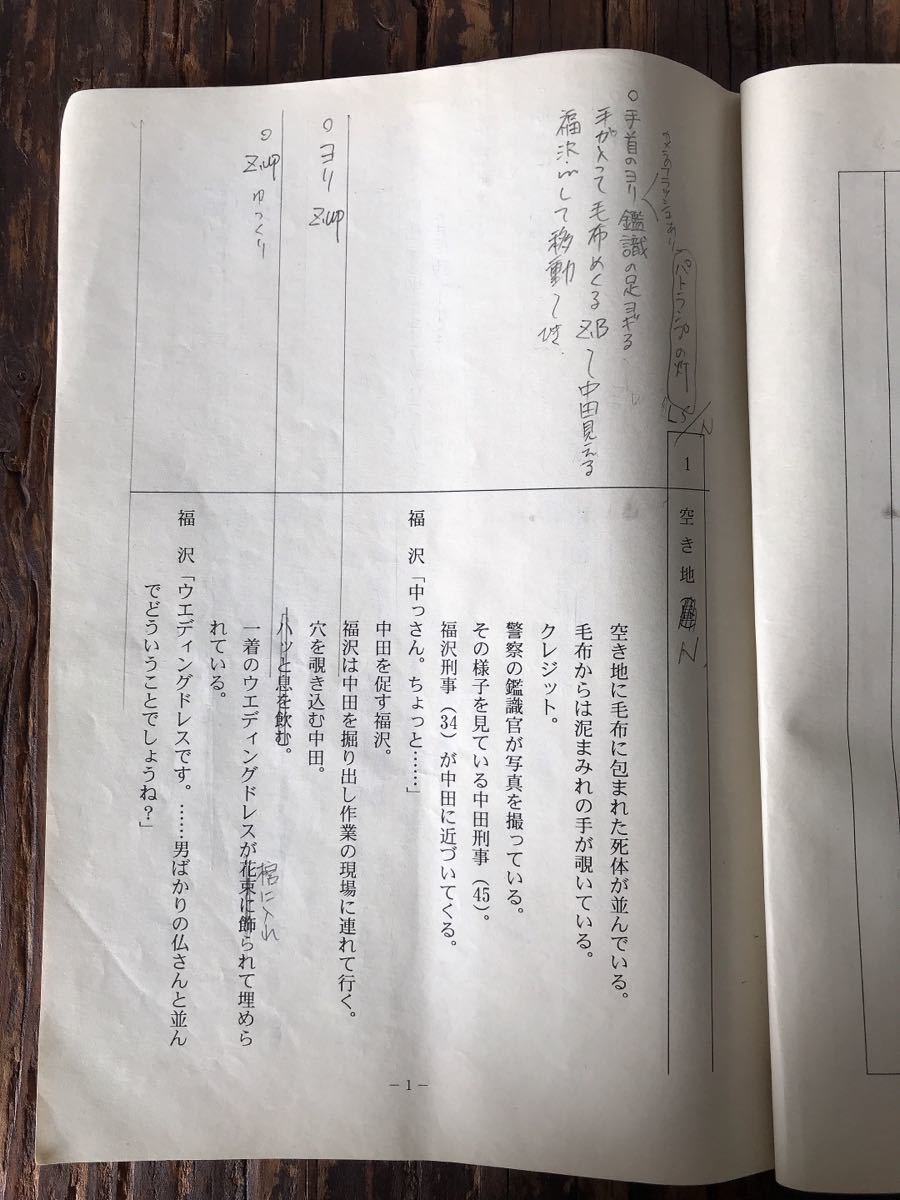 カメラのフラッシュあり
パトランプの灯
LS/N
○手首のヨリ 鑑識の足ヨギる
手が入って毛布めくる Z.B 〜中田見える
福沢 して移動〜
○ヨリ Z.up
○Z.up ゆっくり
1 空き地 N
空き地に毛布に包まれた死体が並んでいる。
毛布からは泥まみれの手が覗いている。
クレジット。
警察の鑑識官が写真を撮っている。
その様子を見ている中田刑事(45)。
福沢刑事(34)が中田に近づいてくる。
福 沢「中っさん。ちょっと……」
中田を促す福沢。
福沢は中田を掘り出し作業の現場に連れて行く。
穴を覗き込む中田。
ハッと息を飲む。
一着のウエディングドレスが花束に飾られて埋めら
棺に入れ
れている。
福 沢「ウエディングドレスです。……男ばかりの仏さんと並ん
でどういうことでしょうね?」
－1－